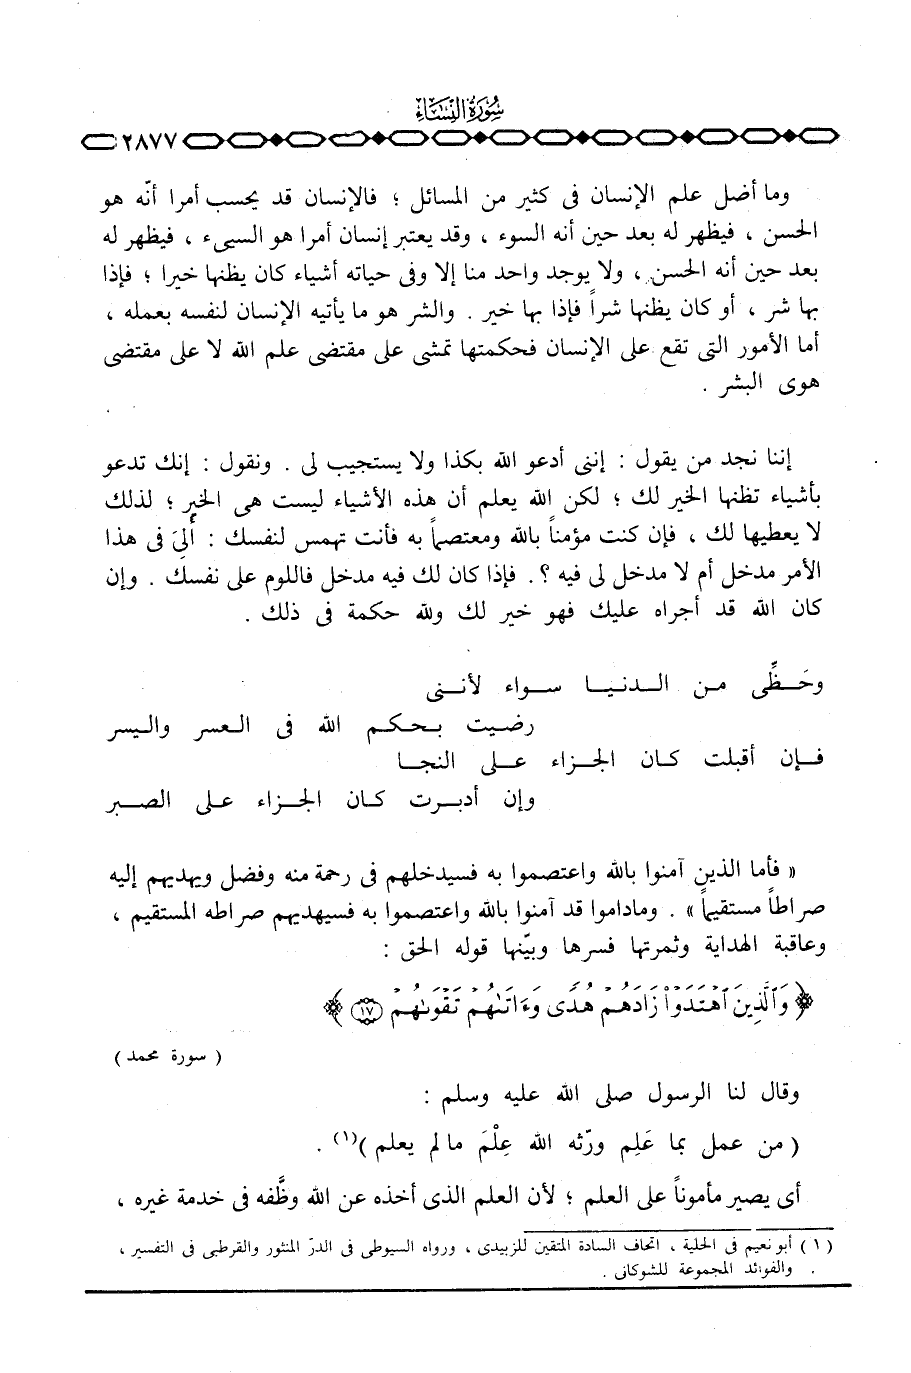 سورة النساء
٢٨٧٧
وما أضل علم الإنسان فى كثير من المسائل ؛ فالإنسان قد يحسب أمرا أنّه هو
الحسن ، فيظهر له بعد حين أنه السوء ، وقد يعتبر إنسان أمرا هو السيىء ، فيظهر له
بعد حين أنه الحسن ، ولا يوجد واحد منا إلا وفى حياته أشياء كان يظنها خيرا ؛ فإذا
بها شر ، أو كان يظنها شراً فإذا بها خير . والشر هو ما يأتيه الإنسان لنفسه بعمله ،
أما الأمور التى تقع على الإنسان فحكمتها تمشى على مقتضى علم الله لا على مقتضى
هوى البشر .
إننا نجد من يقول : إننى أدعو الله بكذا ولا يستجيب لى . ونقول : إنك تدعو
بأشياء تظنها الخير لك ؛ لكن الله يعلم أن هذه الأشياء ليست هى الخير ؛ لذلك
لا يعطيها لك ، فإن كنت مؤمناً بالله ومعتصماً به فأنت تهمس لنفسك : أَلِىَ فى هذا
الأمر مدخل أم لا مدخل لى فيه ؟ . فإذا كان لك فيه مدخل فاللوم على نفسك . وإن
كان الله قد أجراه عليك فهو خير لك ولله حكمة فى ذلك .
وحَـظِّى من الدنيا سواء لأننى
رضيت بحكم الله فى العسر واليسر
فإن أقبلت كان الجزاء على النجا
وإن أدبرت كان الجزاء على الصبر
« فأما الذين آمنوا بالله واعتصموا به فسيدخلهم فى رحمة منه وفضل ويهديهم إليه
صراطاً مستقيماً » . ومادام​وا قد آمنوا بالله واعتصموا به فسيهديهم صراطه المستقيم ،
وعاقبة الهداية وثمرتها فسرها وبيّنها قوله الحق :
﴿ وَٱلَّذِينَ ٱهْتَدَوْا۟ زَادَهُمْ هُدًى وَءَاتَىٰهُمْ تَقْوَىٰهُمْ ١٧ ﴾
( سورة محمد )
وقال لنا الرسول صلى الله عليه وسلم :
( من عمل بما عَلِم ورّثه الله عِلْمَ مالم يعلم )(١) .
أى يصير مأموناً على العلم ؛ لأن العلم الذى أخذه عن الله وظَّفه فى خدمة غيره ،
( ١ ) أبو نعيم فى الحلية ، اتحاف السادة المتقين للزبيدى ، ورواه السيوطى فى الدرّ المنثور والقرطبى فى التفسير ،
والفوائد المجموعة للشوكانى .